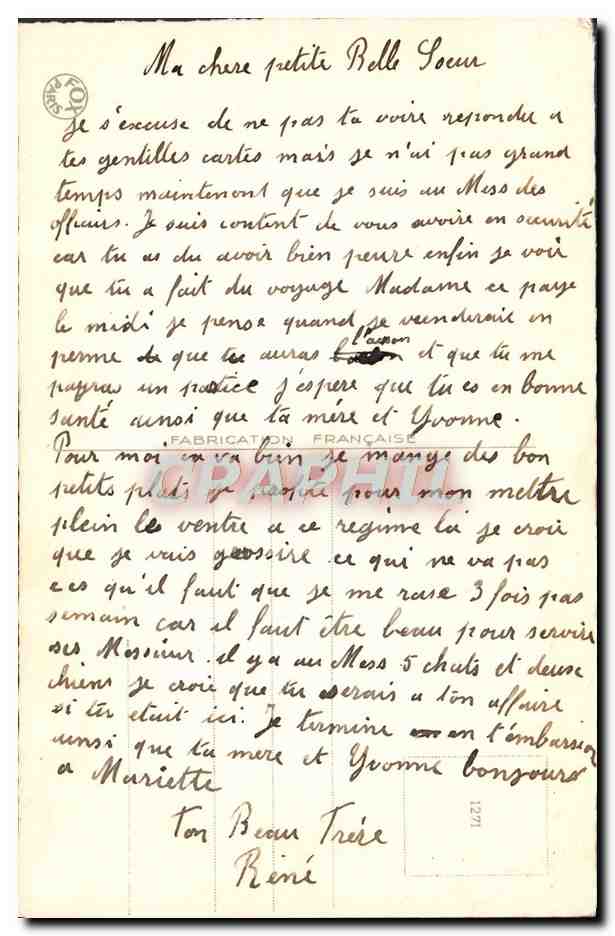 Ma chere petite Belle Soeur
FOX
PARIS
Je s'excuse de ne pas ta voire repondu a
tes gentilles cartes mais je n'ai pas grand
temps maintenont que je suis au Mess des
officiers. Je suis content de vous avoire en sécurité
car tu as du avoir bien peure enfin je voir
que tu a fait du voyage Madame ce paye
le midi je pense quand je veinderait en
perme que tu auras l'acson et que tu me
payra un pastice j'espere que tu es en bonne
santé ainsi que ta mére et Yvonne.
FABRICATION FRANÇAISE
Pour moi ca va bien je mange des bon
petits plats je pour mon mettre
plein le ventre a ce regime la je croie
que je vais grossire ce qui ne va pas
c es qu'il faut que je me rase 3 fois pas
semain car il faut être beau pour servire
ses Messieur. il y a au Mess 5 chats et deuse
chiens je croie que tu serais a ton affaire
si tu etait ici. Je termine en t'embarsion
ainsi que ta mere et Yvonne bonjours
a Mariette
Ton Beau Frére
Réné
1271
CPAPHIL